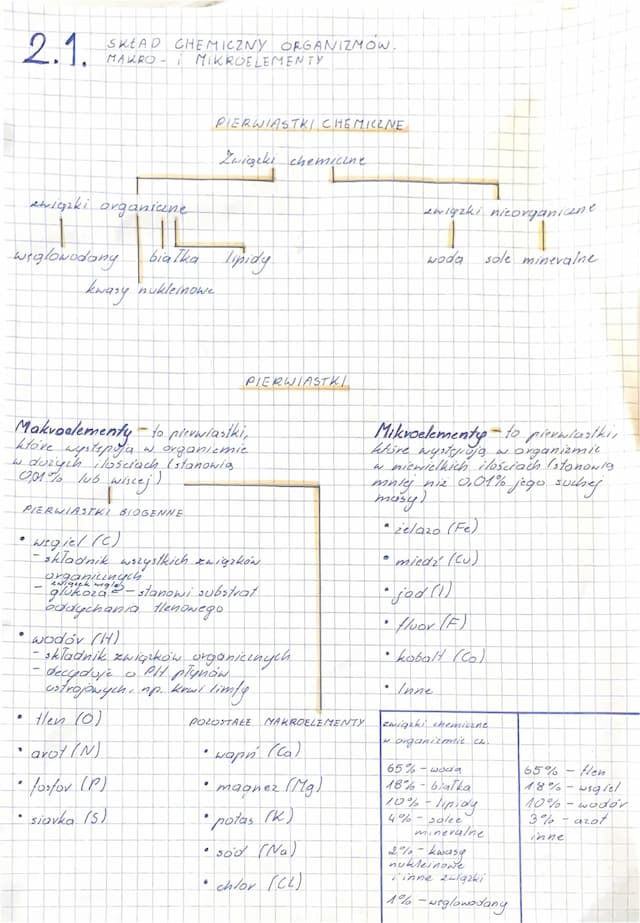 2.1. SKŁAD CHEMICZNY ORGANIZMÓW.
MAKRO- I MIKROELEMENTY
PIERWIASTKI CHEMICZNE
Związki chemiczne
związki organiczne
związki nieorganiczne
węglowodany białka lipidy
woda sole mineralne
kwasy nukleinowe
PIERWIASTKI
Makroelementy - to pierwiastki,
które występują w organizmie
w dużych ilościach (stanowią
0,01% lub więcej)
PIERWIASTKI BIOGENNE
• węgiel (C)
- składnik wszystkich związków
organicznych
związek węgla
- glukoza - stanowi substrat
oddychania tlenowego
• wodór (H)
- składnik związków organicznych
- decyduje o PH płynów
ustrojowych, np. krwi limfy
• tlen (O)
• azot (N)
• fosfor (P)
• siarka (S)
POZOSTAŁE MAKROELEMENTY
• wapń (Ca)
• magnez (Mg)
• potas (K)
• sód (Na)
• chlor (CL)
Mikroelementy - to pierwiastki,
które występują w organizmie
w niewielkich ilościach (stanowią
mniej niż 0,01% jego suchej
masy)
• żelazo (Fe)
• miedź (Cu)
• jod (I)
• fluor (F)
• kobalt (Co)
• Inne
związki chemiczne
w organizmie cz.
65% - woda
18% - białka
10% - lipidy
4% - sole
mineralne
2% - kwasy
nukleinowe
i inne związki
1% - węglowodany
65% - tlen
18% - węgiel
10% - wodór
3% - azot
inne